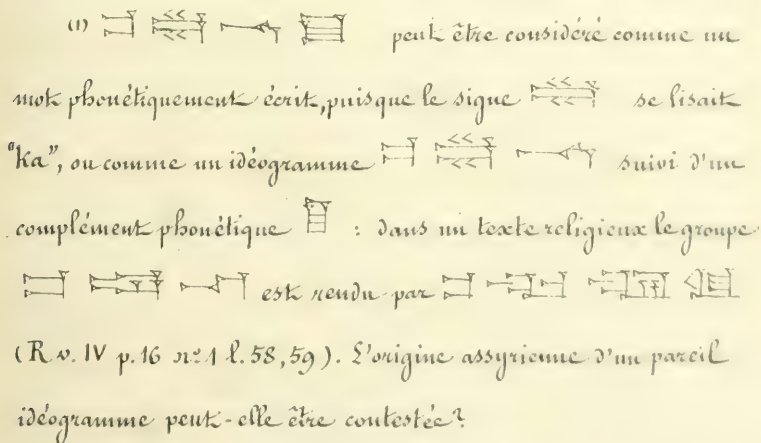 (1) peut être considéré comme un
mot phonétiquement écrit, puisque le signe se lisait
"Ka", ou comme un idéogramme suivi d'un
complément phonétique : dans un texte religieux le groupe
est rendu par
(R. v. IV p. 16 nº 1 l. 58, 59). L'origine assyrienne d'un pareil
idéogramme peut-elle être contestée?